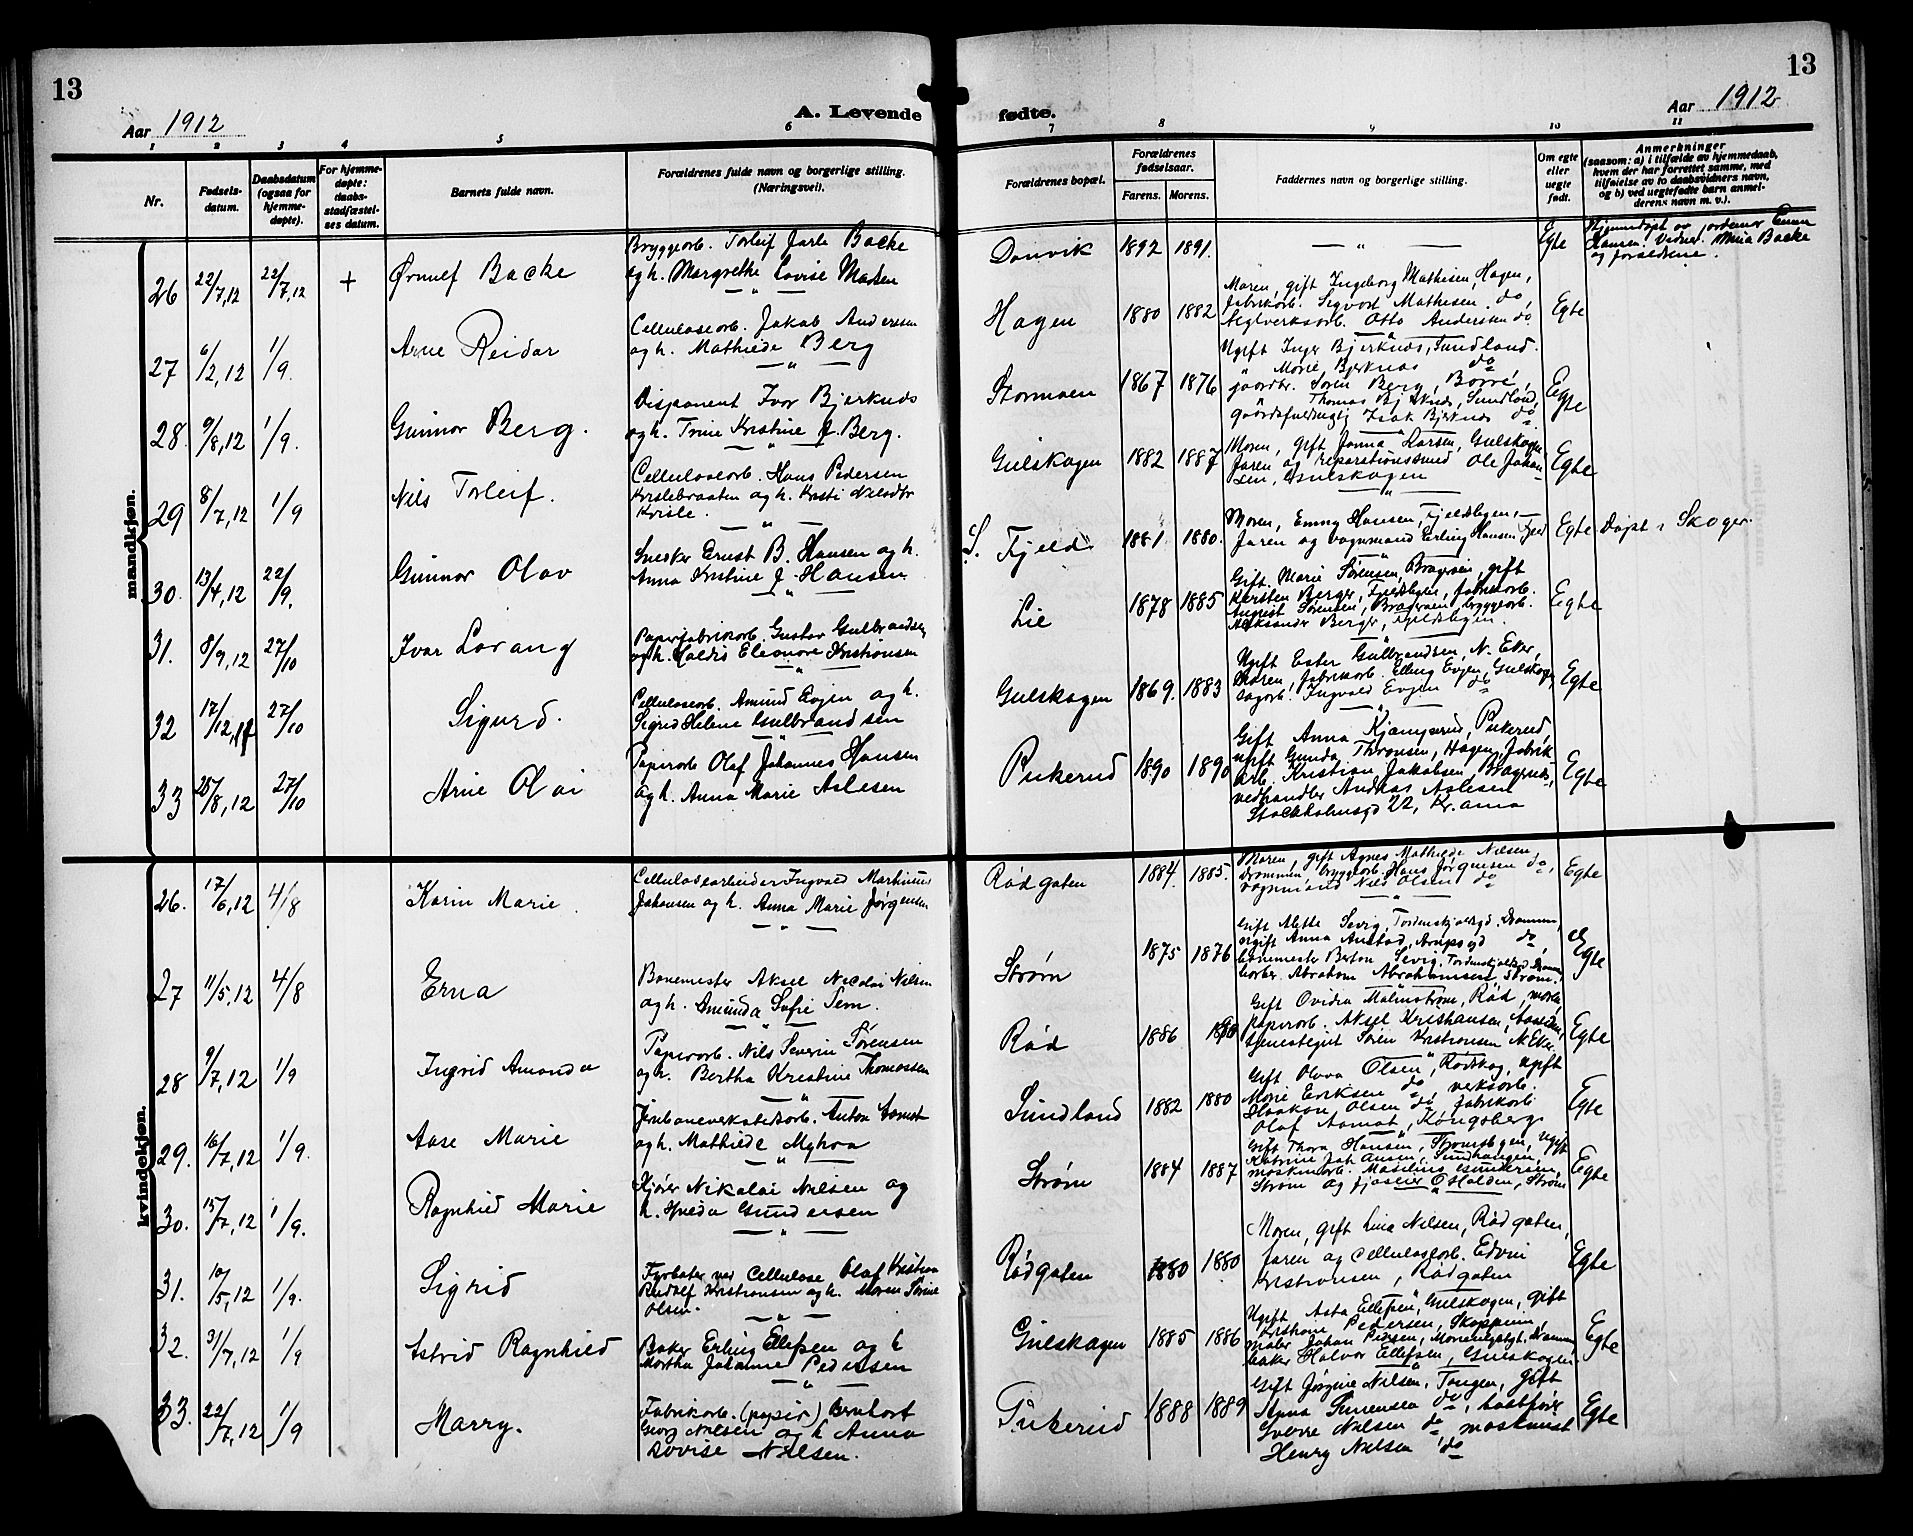 13
Aar 1912
A. Levende
1 2 3 4 5 6
Nr.
Fødsels-
datum.
Daabsdatum
(ogsaa for
hjemme-
døpte).
For hjemme-
døpte:
daabs-
stadfæstel-
ses datum.
Barnets fulde navn.
Forældrenes fulde navn og borgerlige stilling.
(Næringsvei).
mandkjøn.
26 22/7,12 22/7,12 + Ørnulf Backe
Bryggearb. Torleif Jarle Backe
og h. Margrethe Lovise Madsen
27 6/2,12 1/9. Arne Reidar
Cellulosearb. Jakob Andersen
og h. Mathilde Berg
28. 9/8,12 1/9. Gunnar Berg.
Disponent Ivar Bjerknes
og h. Trine Kristine J. Berg.
29 8/7,12 1/9 Nils Torleif.
Cellulosearb. Hans Pedersen
og h. Kristi
30. 13/4,12 22/9. Gunnar Olav
Snedker Ernst B. Hansen og h.
Anna Kristine J. Hansen
31. 8/9,12 27/10 Ivar Lorang
Papirfabrikarb. Gustav Gulbrandsen
og h. Valdis Eleonore Kristiansen
32 17/12,11 27/10 Sigurd.
Cellulosearb. Amund Evjen og h.
Sigrid Helene Gulbrandsen
33 25/8,12 27/10 Arne Olai
Papirarb Olaf Johannes Hansen
og h. Anna Marie Aslesen
kvindekjøn.
26. 17/6,12 4/8 Karin Marie
Cellulosearbeider Ingvald Martinius
Johansen og h. Anna Marie Jørgensen
27 11/5,12 4/8 Erna
Banemester Aksel Nicolai Nilsen
og h. Amunda Sofie Sem.
28 9/7,12 1/9 Ingrid Amanda
Papirarb. Nils Severin Sørensen
og h. Bertha Kristine Thomassen
29. 16/7,12 1/9. Aase Marie
Anton Aamot
og h. Mathilde Myhra
30. 15/7,12 1/9. Ragnhild Marie
Kjører Nikolai Nilsen og
h. Hilda Gundersen
31. 10/5,12 1/9. Sigrid
Fyrbøter ved Cellulose Olaf Kristian
Rudolf Kristiansen og h. Maren Sørine
Olsen.
32. 31/7,12 1/9 Astrid Ragnhild
Baker Erling Ellefsen og h
Martha Johanne Pedersen
33. 22/7,12 1/9 Marry.
Fabrikarb. (papir) Bernhart
Georg Nilsen og h Anna
Lovise Nilsen.
13
Aar 1912
fødte.
7 8 9 10 11
Forældrenes bopæl.
Forældrenes
fødselsaar.
Farens. Morens.
Faddernes navn og borgerlige stilling.
Om egte
eller
uegte
født.
Anmerkninger
(saasom: a) i tilfælde av hjemmedaab,
hvem der har forrettet samme, med
tilføielse av to daabsvidners navn,
og b) ved uegtefødte barn anmel-
derens navn m. v.).
Danvik 1892 1891. — „ — Egte
Hjemmedøpt av jordemor Emma
Hansen. Vidner: Mina Backe
og forældrene.
Hagen 1880 1882
Moren, gift Ingeborg Mathisen, Hagen,
fabrikarb. Sigvart Mathisen do,
Teglverksarb. Otto Andersen do
Egte
Stormoen 1867 1876
Ugift Inger Bjerknes, Sundland.
„ Marie Bjerknes do
gaardbr. Søren Berg, Borre,
Thomas Bjerknes, Sundland,
gaardsfuldmegtig Isak Bjerknes do
Egte
Gulskogen 1882 1887
Moren, gift Janna Larsen, Gulskogen
Faren og reparationssmed Ole Johan
sen, Gulskogen
Egte
S. Fjeld 1881 1880.
Moren, Emmy Hansen, Fjeldbyen,
Faren og vognmand Erling Hansen Fjeld
Egte Døpt i Skoger.
Lie 1878 1885
Gift Marie Sørensen, Bragernes, gift
Karsten Berger, Fjeldbyen, fabrikarb.
August Sørensen, Bragernes bryggearb.
Aleksander Berger, Fjeldbyen.
Egte
Gulskogen 1869. 1883
Ugift Ester Gulbrandsen, N. Eker,
Moren, fabrikarb. Elling Evjen Gulskogen,
sagarb. Ingvald Evjen do
Egte
Pukerud 1890 1890
Gift Anna Kjamperud, Pukerud,
ugift Gunda Thronsen, Hagen, fabrik
arb. Kristian Jakobsen, Bragernes,
vedhandler Andreas Aslesen
Stockholmsgd 22, Kr.ania
Egte
Rødgaten 1884. 1885.
Moren, gift Agnes Mathilde Nilsen
Drammen bryggearb. Hans Jørgensen do,
vognmand Nils Olsen do
Egte
Strøm 1875 1876
Gift Alette Sevig, Tordenskjoldsgd. Drammen,
ugift Anna Austad, do,
banemester Berton Sevig, Tordenskjoldsgd. Drammen
Abraham Abrahamsen, Strøm.
Egte
Rød 1886
Gift Ovidia Malmstrøm, Rød,
papirarb. Aksel Kristiansen,
tjenestegut Søren Kristiansen N. Eker
Egte
Sundland 1882 1880
Gift Olava Olsen, Rødskog, ugift
Marie Eriksen do verksarb.
Haakon Olsen do fabrikarb
Olaf Aamot, Kongsberg
Egte
Strøm 1884 1887
Gift Thora Hansen, Ugift
Katrine Johansen, Sundhaugen,
maskinarb. Maselius Gundersen,
Strøm og O Halden, Strøm
Egte
Rødgaten 1880 1880
Moren, gift Lina Nilsen, Rødgaten,
faren og Cellulosearb. Edvin
Kristiansen, Rødgaten
Egte
Gulskogen 1885 1886
Ugift Asta Ellefsen, Gulskogen, gift
Kristiane Pedersen, Skoppum,
maler Johan Pedersen, Drammen,
baker Halvor Ellefsen, Gulskogen
Egte
Pukerud 1888 1889
Gift Jørgine Nilsen, Tangen, gift
Anna Gunnersen do,
Sverre Nilsen do maskinist
Henry Nilsen do
Egte